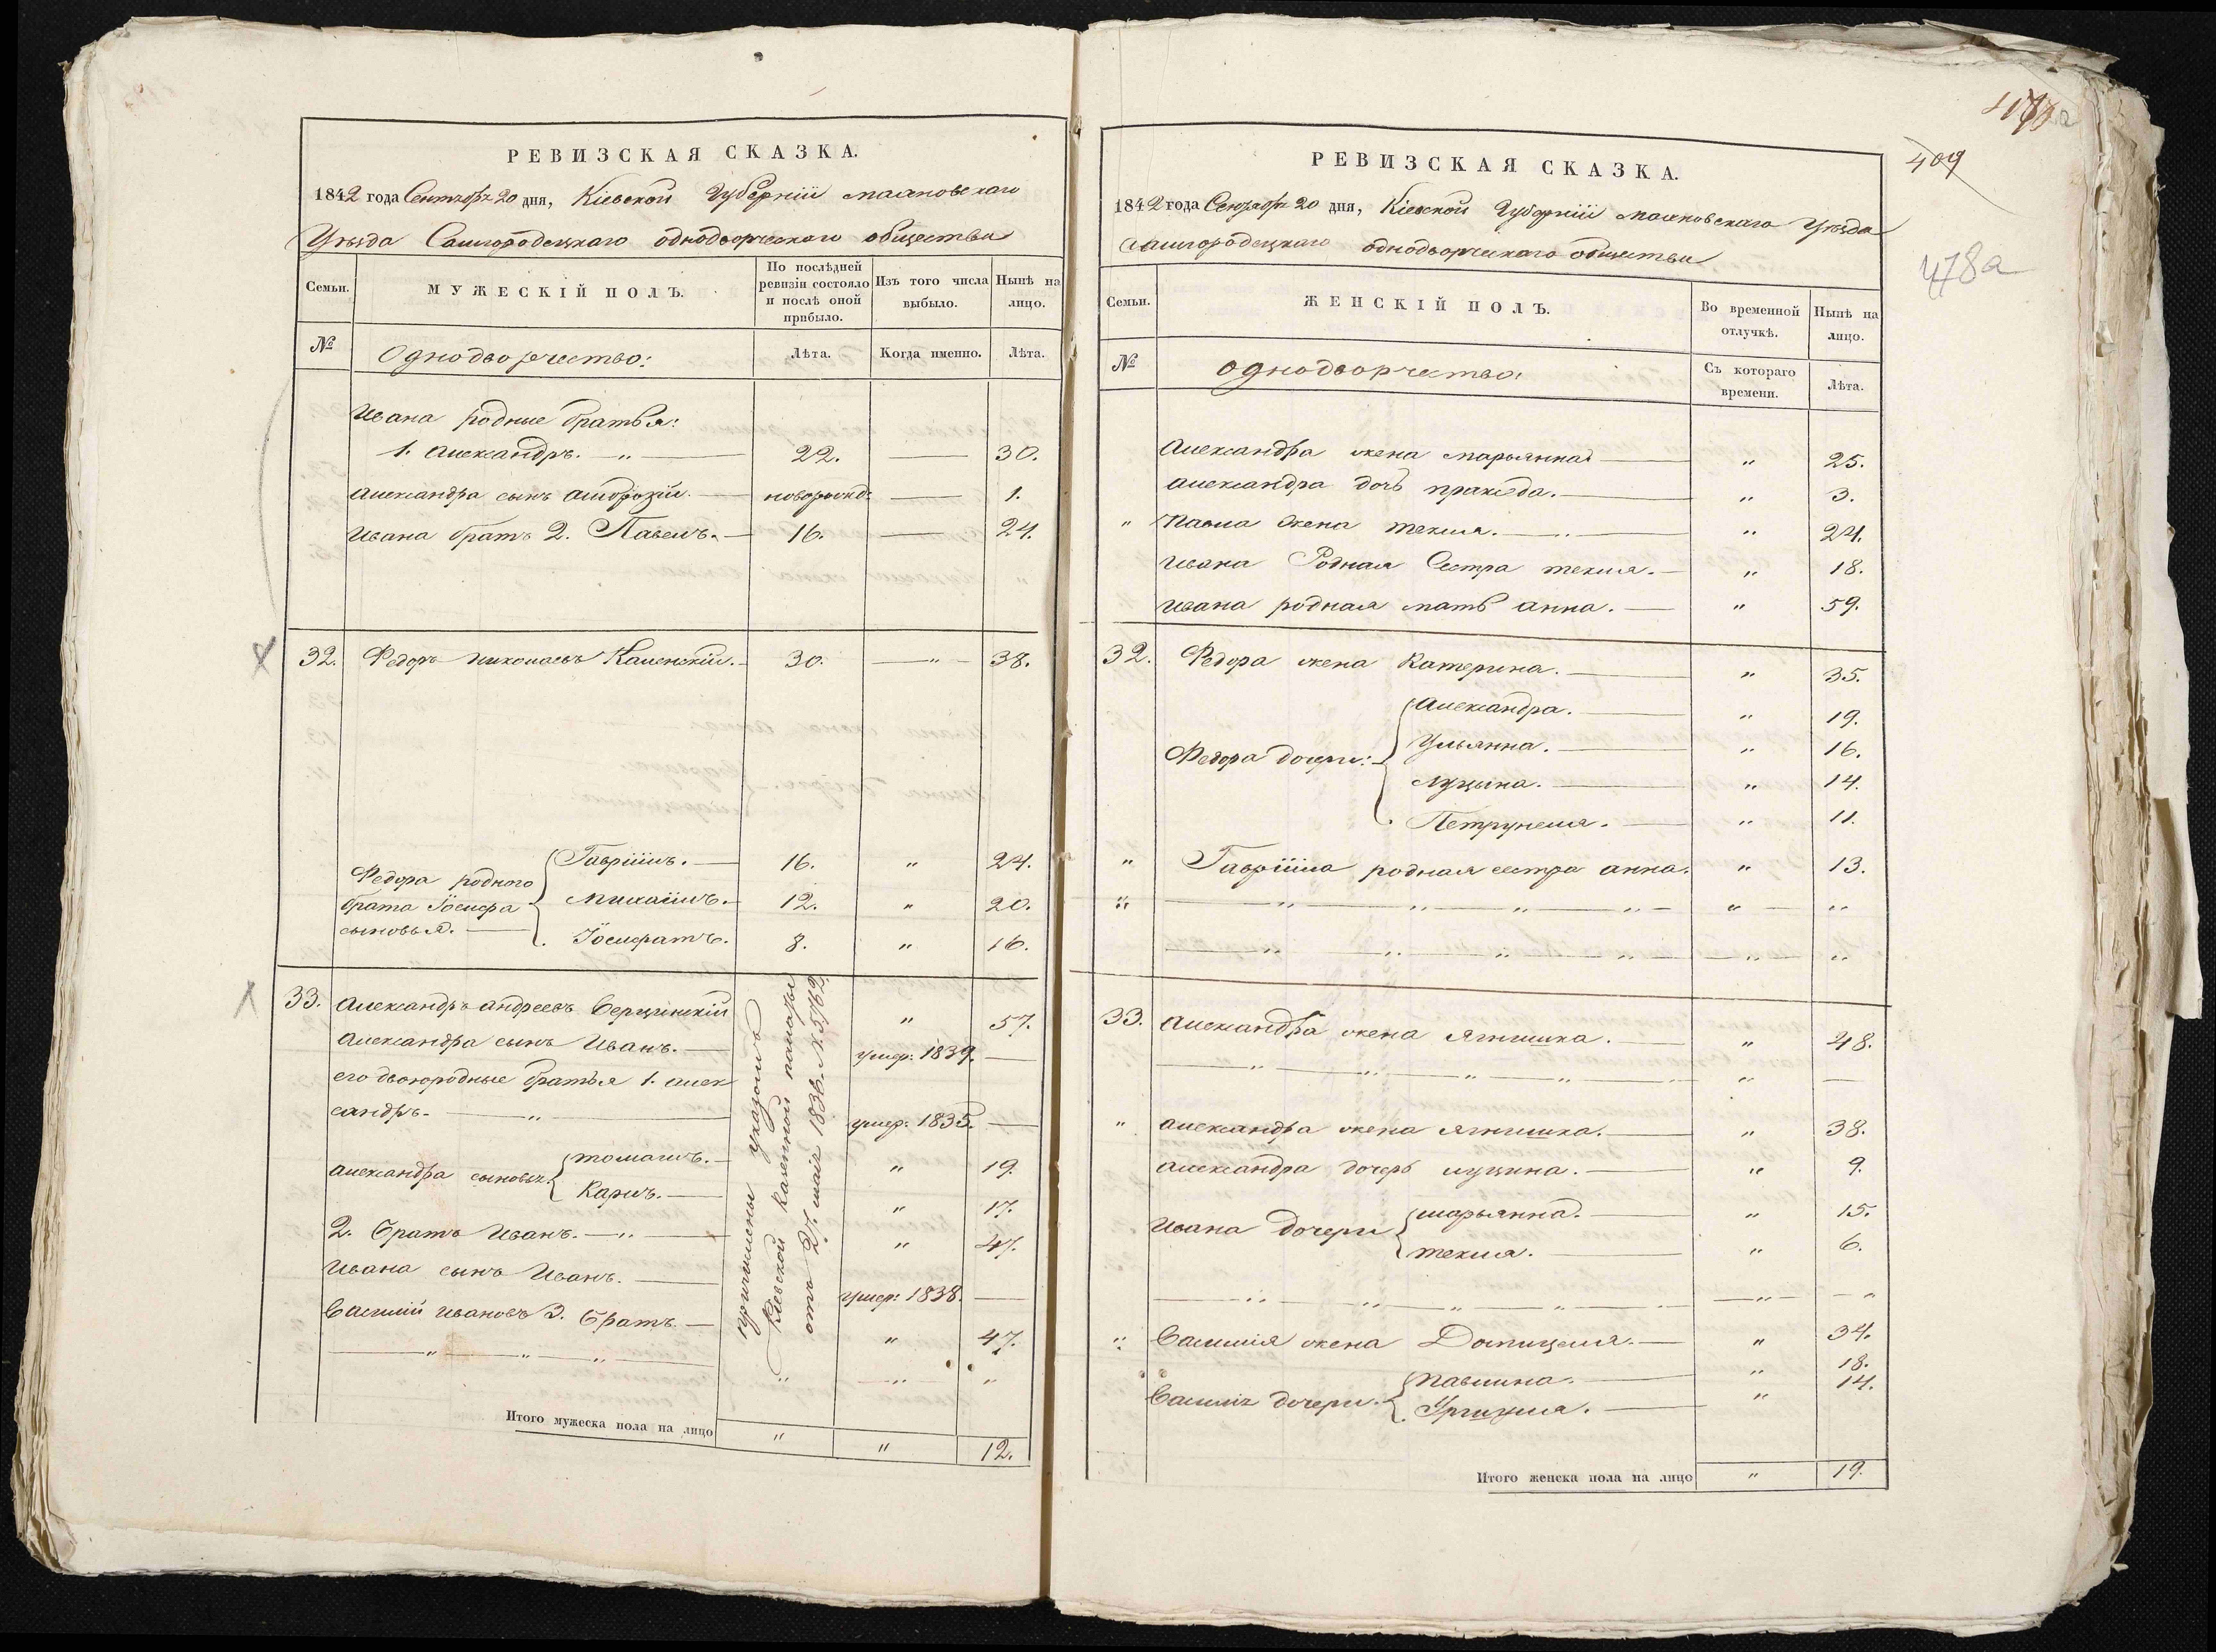 РЕВИЗСКАЯ СКАЗКА.
1842 года Сентября 20 дня, Кіевской Губерніи Махновскаго
Уѣзда Самгородецкаго однодворческаго общества
Семьи.
МУЖЕСКІЙ ПОЛЪ.
По послѣдней ревизіи состояло и послѣ оной прибыло.
Изъ того числа выбыло.
Нынѣ на лицо.
№
Однодворчество:
Лѣта.
Когда именно.
Лѣта.
Ивана родные братья:
1. Александръ. — „ — 22. — 30.
Александра сынъ Амброзій. — новорожд: — 1.
Ивана братъ 2. Павелъ. — 16. — 24.
32. Федоръ Николаевъ Каленскій. — 30. — „ — 38.
Федора родного брата Іосифа сыновья. —
Гавріилъ. — 16. „ 24.
Михаилъ. — 12. „ 20.
Іосифатъ. 8. „ 16.
33. Александръ Андреевъ Верцинскій „ 57.
Александра сынъ Иванъ. — умер: 1839. —
его двоюродные братья 1. Алек
сандръ. — „ — умер: 1835. —
Александра сыновья
Томашъ. — „ 19.
Карлъ. — „ 17.
2. Братъ Иванъ. — „ — „ 47.
Ивана сынъ Иванъ. — умер: 1838. —
Василій Ивановъ 3. Братъ. — „ 47.
— „ — „ — „ — „ — „ — „
причислены указомъ
Кіевской казенной палаты
отъ 27. мая 1836. № 5762.
Итого мужеска пола на лицо „ „ 12.
РЕВИЗСКАЯ СКАЗКА.
1842 года Сентября 20 дня, Кіевской Губерніи Махновскаго Уѣзда
Самгородецкаго однодворческаго общества
Семьи.
ЖЕНСКІЙ ПОЛЪ.
Во временной отлучкѣ.
Нынѣ на лицо.
№
Однодворчество:
Съ котораго времени.
Лѣта.
Александра жена Марьянна — „ 25.
Александра дочь Пракседа. — „ 3.
„ Павла жена Текля. — „ — „ 24.
Ивана Родная Сестра Текля. — „ 18.
Ивана родная мать Анна. — „ 59.
32. Федора жена Катерина. — „ 35.
Федора дочери: —
Александра. — „ 19.
Ульянна. — „ 16.
Луцына. — „ 14.
Петрунеля. — „ 11.
„ Гавріила родная сестра Анна. „ 13.
„ — „ — „ — „ — „ — „ — „
— „ — „ — „ — „ — „ — „
33. Александра жена Ягнишка. — „ 48.
— „ — „ — „ — „ — „ —
„ Александра жена Ягнишка. — „ 38.
Александра дочерь Луцина. — „ 9.
Ивана дочери
Марьянна. — „ 15.
Текля. — „ 6.
— „ — „ — „ — „ — „ — „ — „
„ Василія жена Домицеля. — „ 34.
Василія дочери. —
Павлина. — „ 18.
Урщуля. — „ 14.
Итого женска пола на лицо „ 19.
409
478а